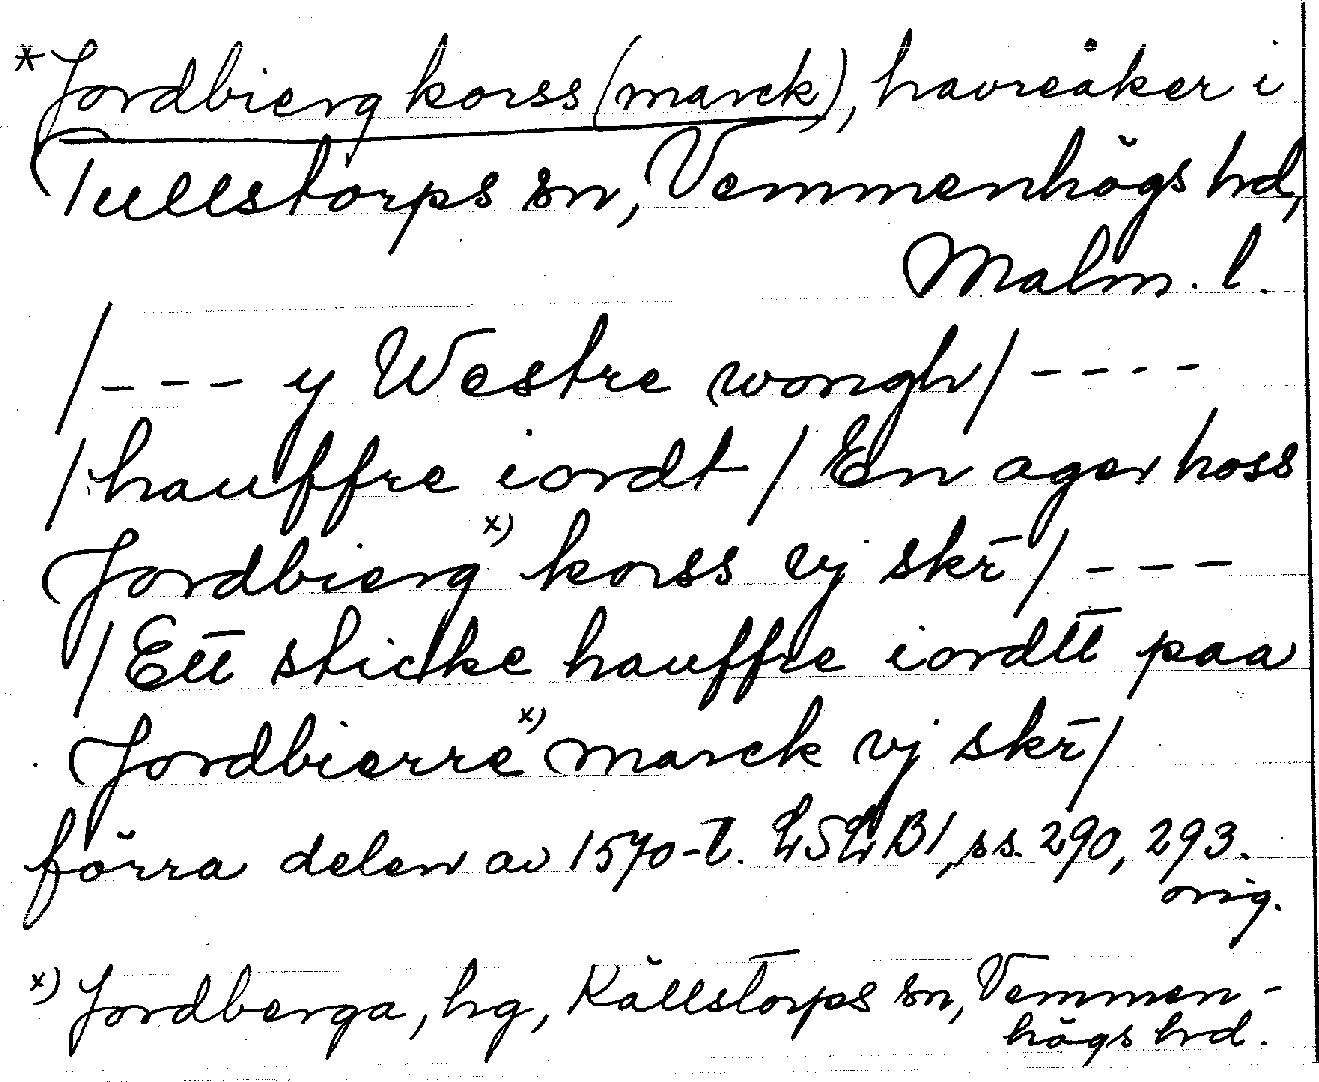 *Jordbierg korss (marck), havreåker i
Tullstorps sn, Vemmenhögs hd,
Malm. l.
/--- y Westre wongh/ ----
/hauffre iordt/ En ager hoss
Jordbierg x) korss vj skr̄/ ---
/Ett sticke hauffre iordtt paa
Jordbierre x) marck vj skr̄/
förra delen av 1570-t. LSLB1, ss. 290, 293.
orig.
x) Jordberga, hg, Källstorps sn, Vemmen-
högs hd.